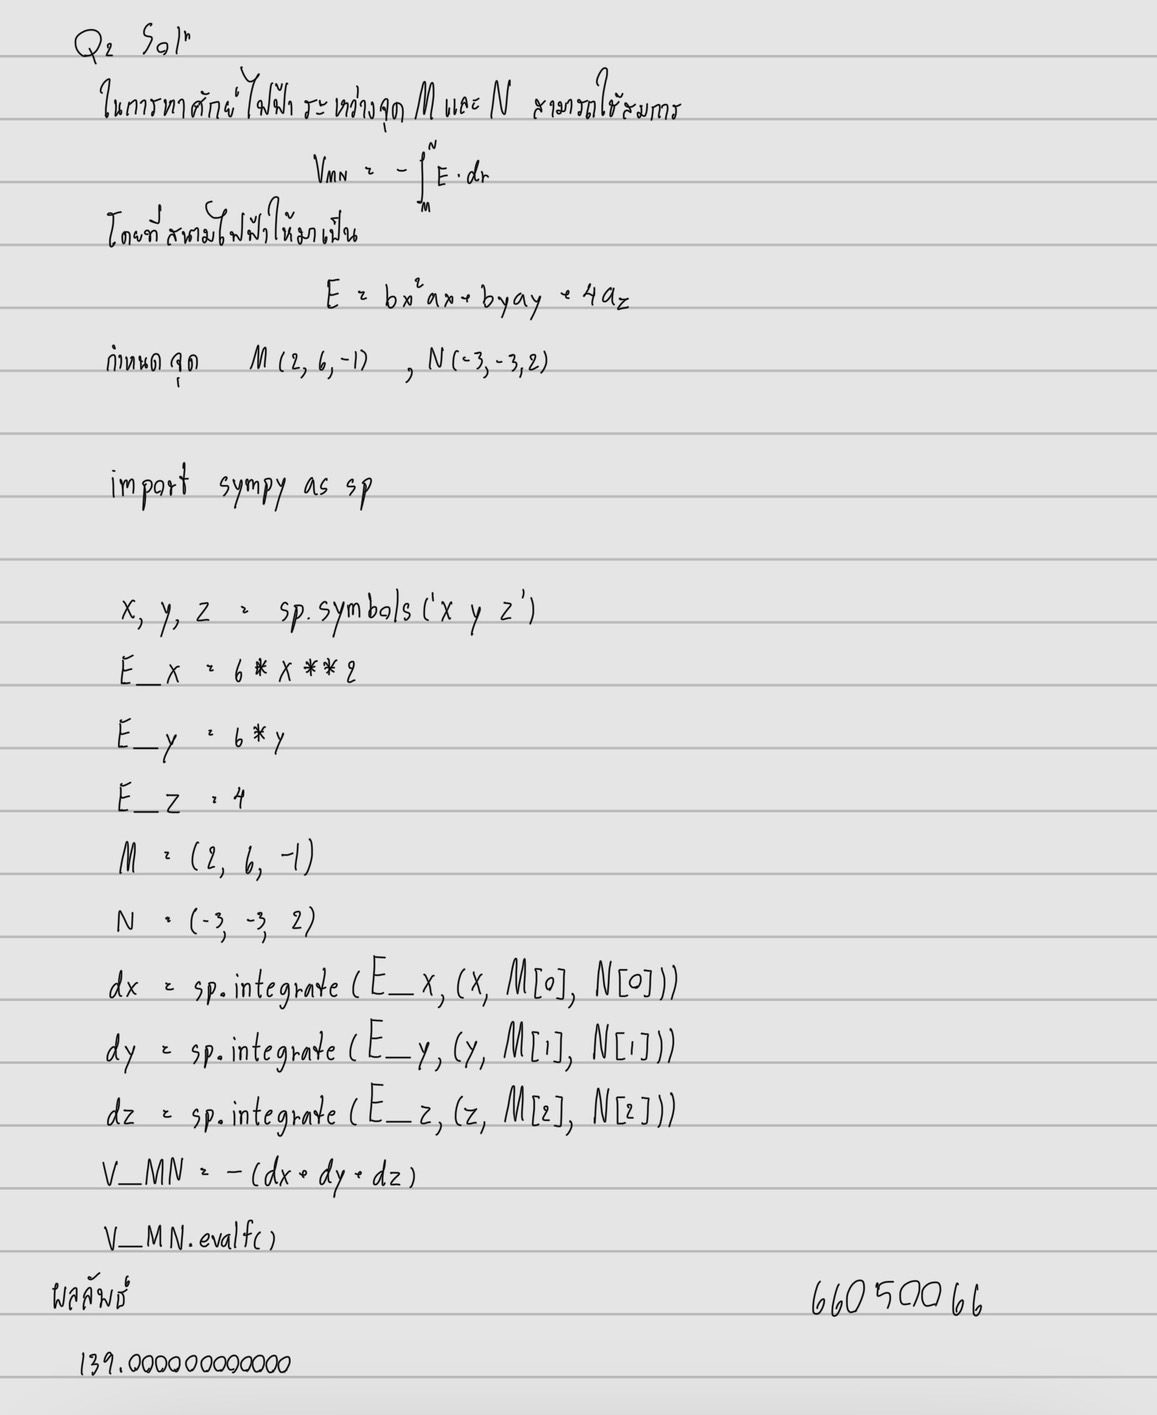 Q2 Solⁿ
ในการหาศักย์ไฟฟ้าระหว่างจุด M และ N สามารถใช้สมการ
V_MN = - ∫_M^N E · dr
โดยที่สนามไฟฟ้าให้มาเป็น
E = 6x² ax + 6y ay + 4 az
กำหนดจุด M (2, 6, -1) , N (-3, -3, 2)
import sympy as sp
x, y, z = sp.symbols('x y z')
E_x = 6 * x ** 2
E_y = 6 * y
E_z = 4
M = (2, 6, -1)
N = (-3, -3, 2)
dx = sp.integrate (E_x, (x, M[0], N[0]))
dy = sp.integrate (E_y, (y, M[1], N[1]))
dz = sp.integrate (E_z, (z, M[2], N[2]))
V_MN = - (dx + dy + dz)
V_MN.evalf()
ผลลัพธ์ 66050066
139.000000000000